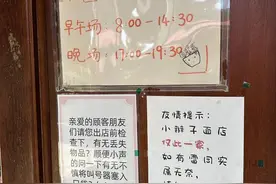 早午场: 8:00-14:30
晚场: 17:00-19:30
亲爱的顾客朋友
们请您出店前检
查下，有无丢失
物品？顺便小声
的问一下有无不
慎将叫号器塞入
友情提示:
小班子面店
仅此一家,
如有雷同实
属无奈,